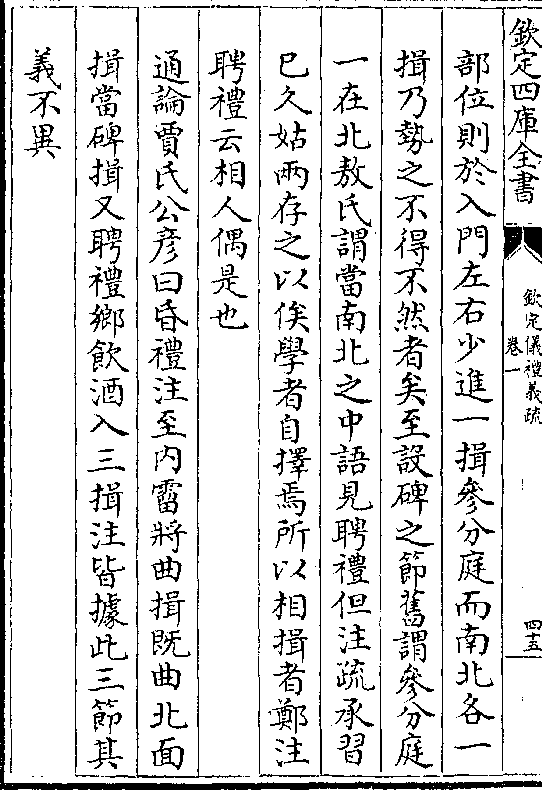 欽定四庫全書
欽定儀禮義疏
卷一
四五
部位則於入門左右少進一揖參分庭而南北各一
揖乃勢之不得不然者矣至設碑之節舊謂參分庭
一在北敖氏謂當南北之中語見聘禮但注疏承習
已久姑兩存之以俟學者自擇焉所以相揖者鄭注
聘禮云相人偶是也
通論賈氏公彦曰昏禮注至内霤將曲揖既曲北面
揖當碑揖又聘禮鄉飲酒入三揖注皆據此三節其
義不異